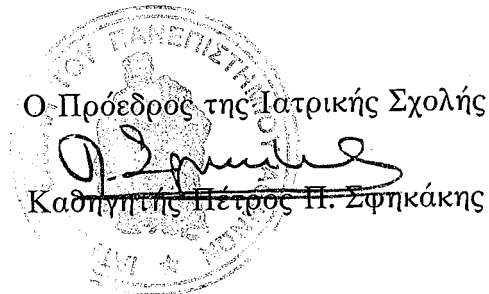 Ο Πρόεδρος της Ιατρικής Σχολής
Π. Σφηκάκης
Καθηγητής Πέτρος Π. Σφηκάκης